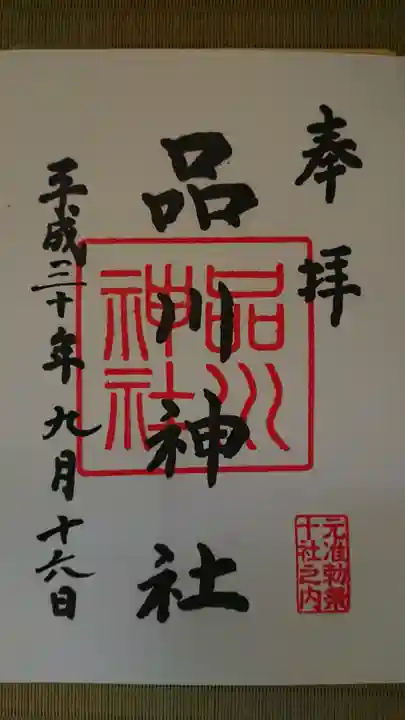 奉拝
品川神社
平成三十年九月十六日
品川
神社
元准勅祭
十社之内